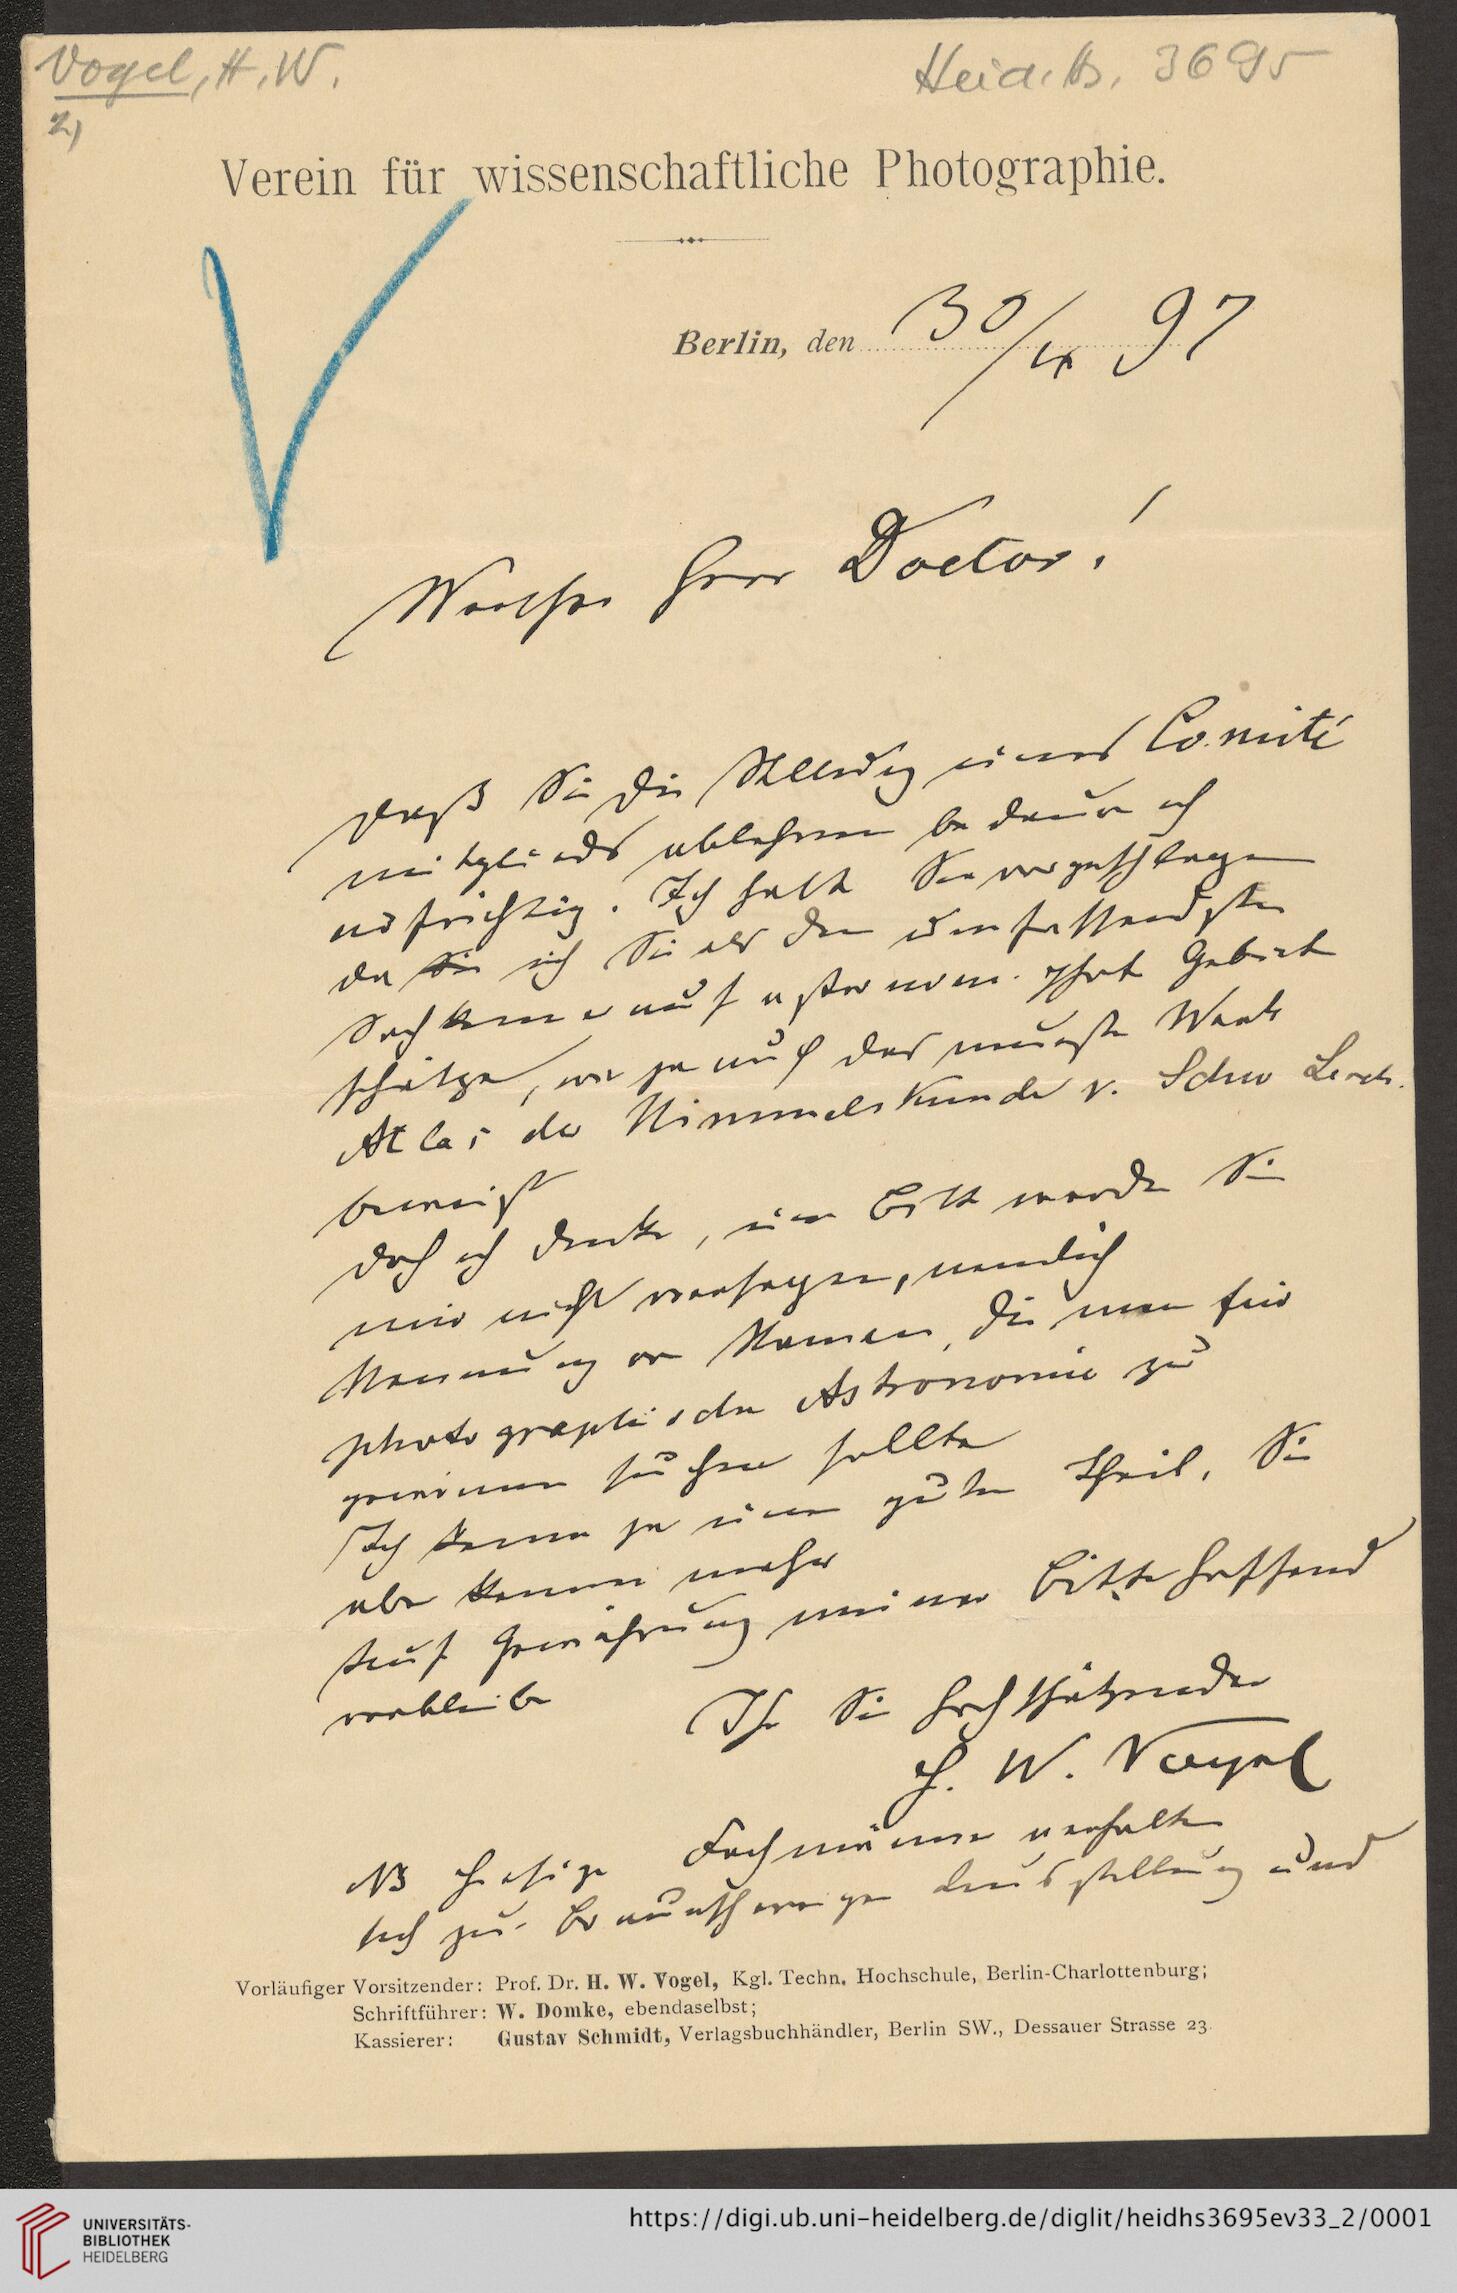 Vogel, H. W.
2)
Heid. Hs. 3695
Verein für wissenschaftliche Photographie.
Berlin, den 30/4 97
Werther Herr Doctor!
Daß Sie die Stellung eines Comité
mitglieds ablehnen bedaure ich
aufrichtig. Ich hatte Sie vorgeschlagen
da ich Sie als den umfassendsten
Sachkenner auf astronom. phot Gebiete
schätze, wie ja auch das neueste Werk
Atlas der Himmelskunde v.
beweist
Doch ich denke, eine Bitte werden Sie
mir nicht versagen, nemlich
Nennung von Namen, die man für
photographische Astronomie zu
gewinnen suchen sollte
Ich kenne ja einen guten Theil, Sie
aber kennen mehr
Auf Gewährung meiner Bitte hoffend
verbleibe
Ihr Sie hochschätzender
H. W. Vogel
NB Hiesige Fachmänner verhalten
sich zur Ausstellung und
Vorläufiger Vorsitzender: Prof. Dr. H. W. Vogel, Kgl. Techn. Hochschule, Berlin-Charlottenburg;
Schriftführer: W. Domke, ebendaselbst;
Kassierer: Gustav Schmidt, Verlagsbuchhändler, Berlin SW., Dessauer Strasse 23.
UNIVERSITÄTS-
BIBLIOTHEK
HEIDELBERG
https://digi.ub.uni-heidelberg.de/diglit/heidhs3695ev33_2/0001